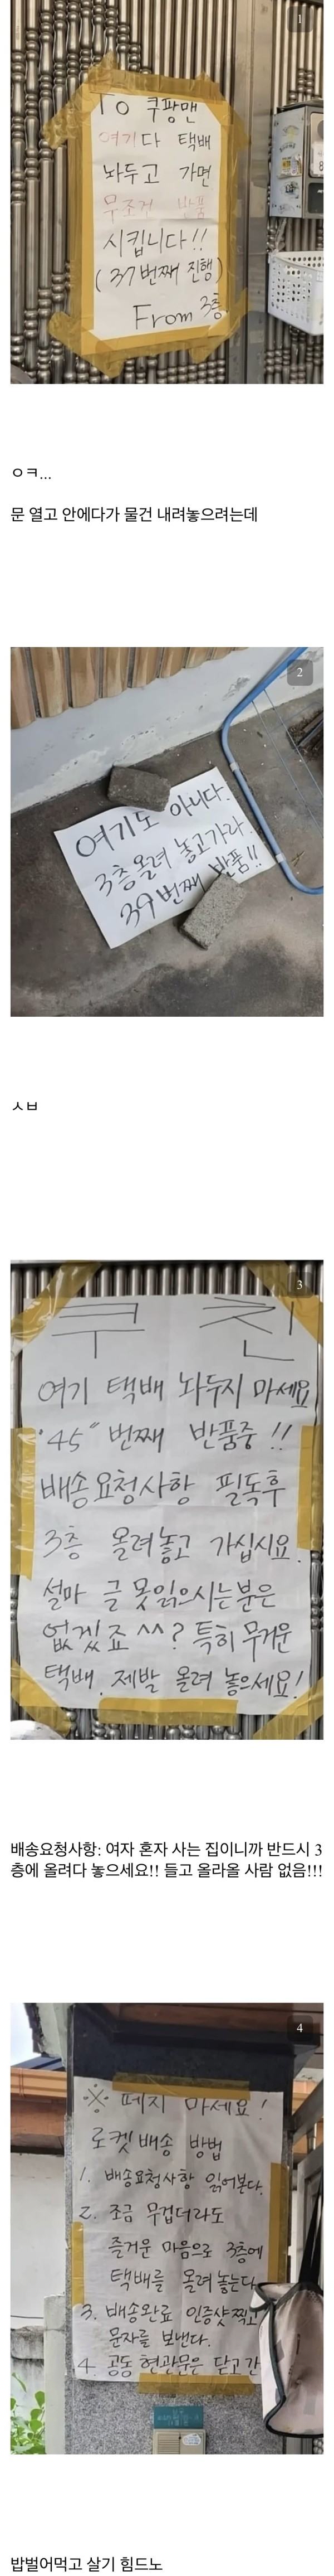 1
To 쿠팡맨
여기다 택배
놔두고 가면
무조건 반품
시킵니다!!
(37번째 진행)
From 3층
ㅇㅋ...
문 열고 안에다가 물건 내려놓으려는데
2
여기도 아니다.
3층올려 놓고가라.
39번째 반품!!
ㅅㅂ
3
쿠 친
여기 택배 놔두지 마세요
"45" 번째 반품중!!
배송요청사항 필독후
3층 올려놓고 가십시요.
설마 글 못읽으시는분은
없겠죠^^? 특히 무거운
택배. 제발 올려 놓으세요!
배송요청사항: 여자 혼자 사는 집이니까 반드시 3
층에 올려다 놓으세요!! 들고 올라올 사람 없음!!!
4
※ 떼지 마세요!
로켓 배송 방법
1. 배송요청사항 읽어본다.
2. 조금 무겁더라도
즐거운 마음으로 3층에
택배를 올려놓는다.
3. 배송완료 인증샷찍고
문자를 보낸다.
4. 공동 현관문은 닫고간
밥벌어먹고 살기 힘드노